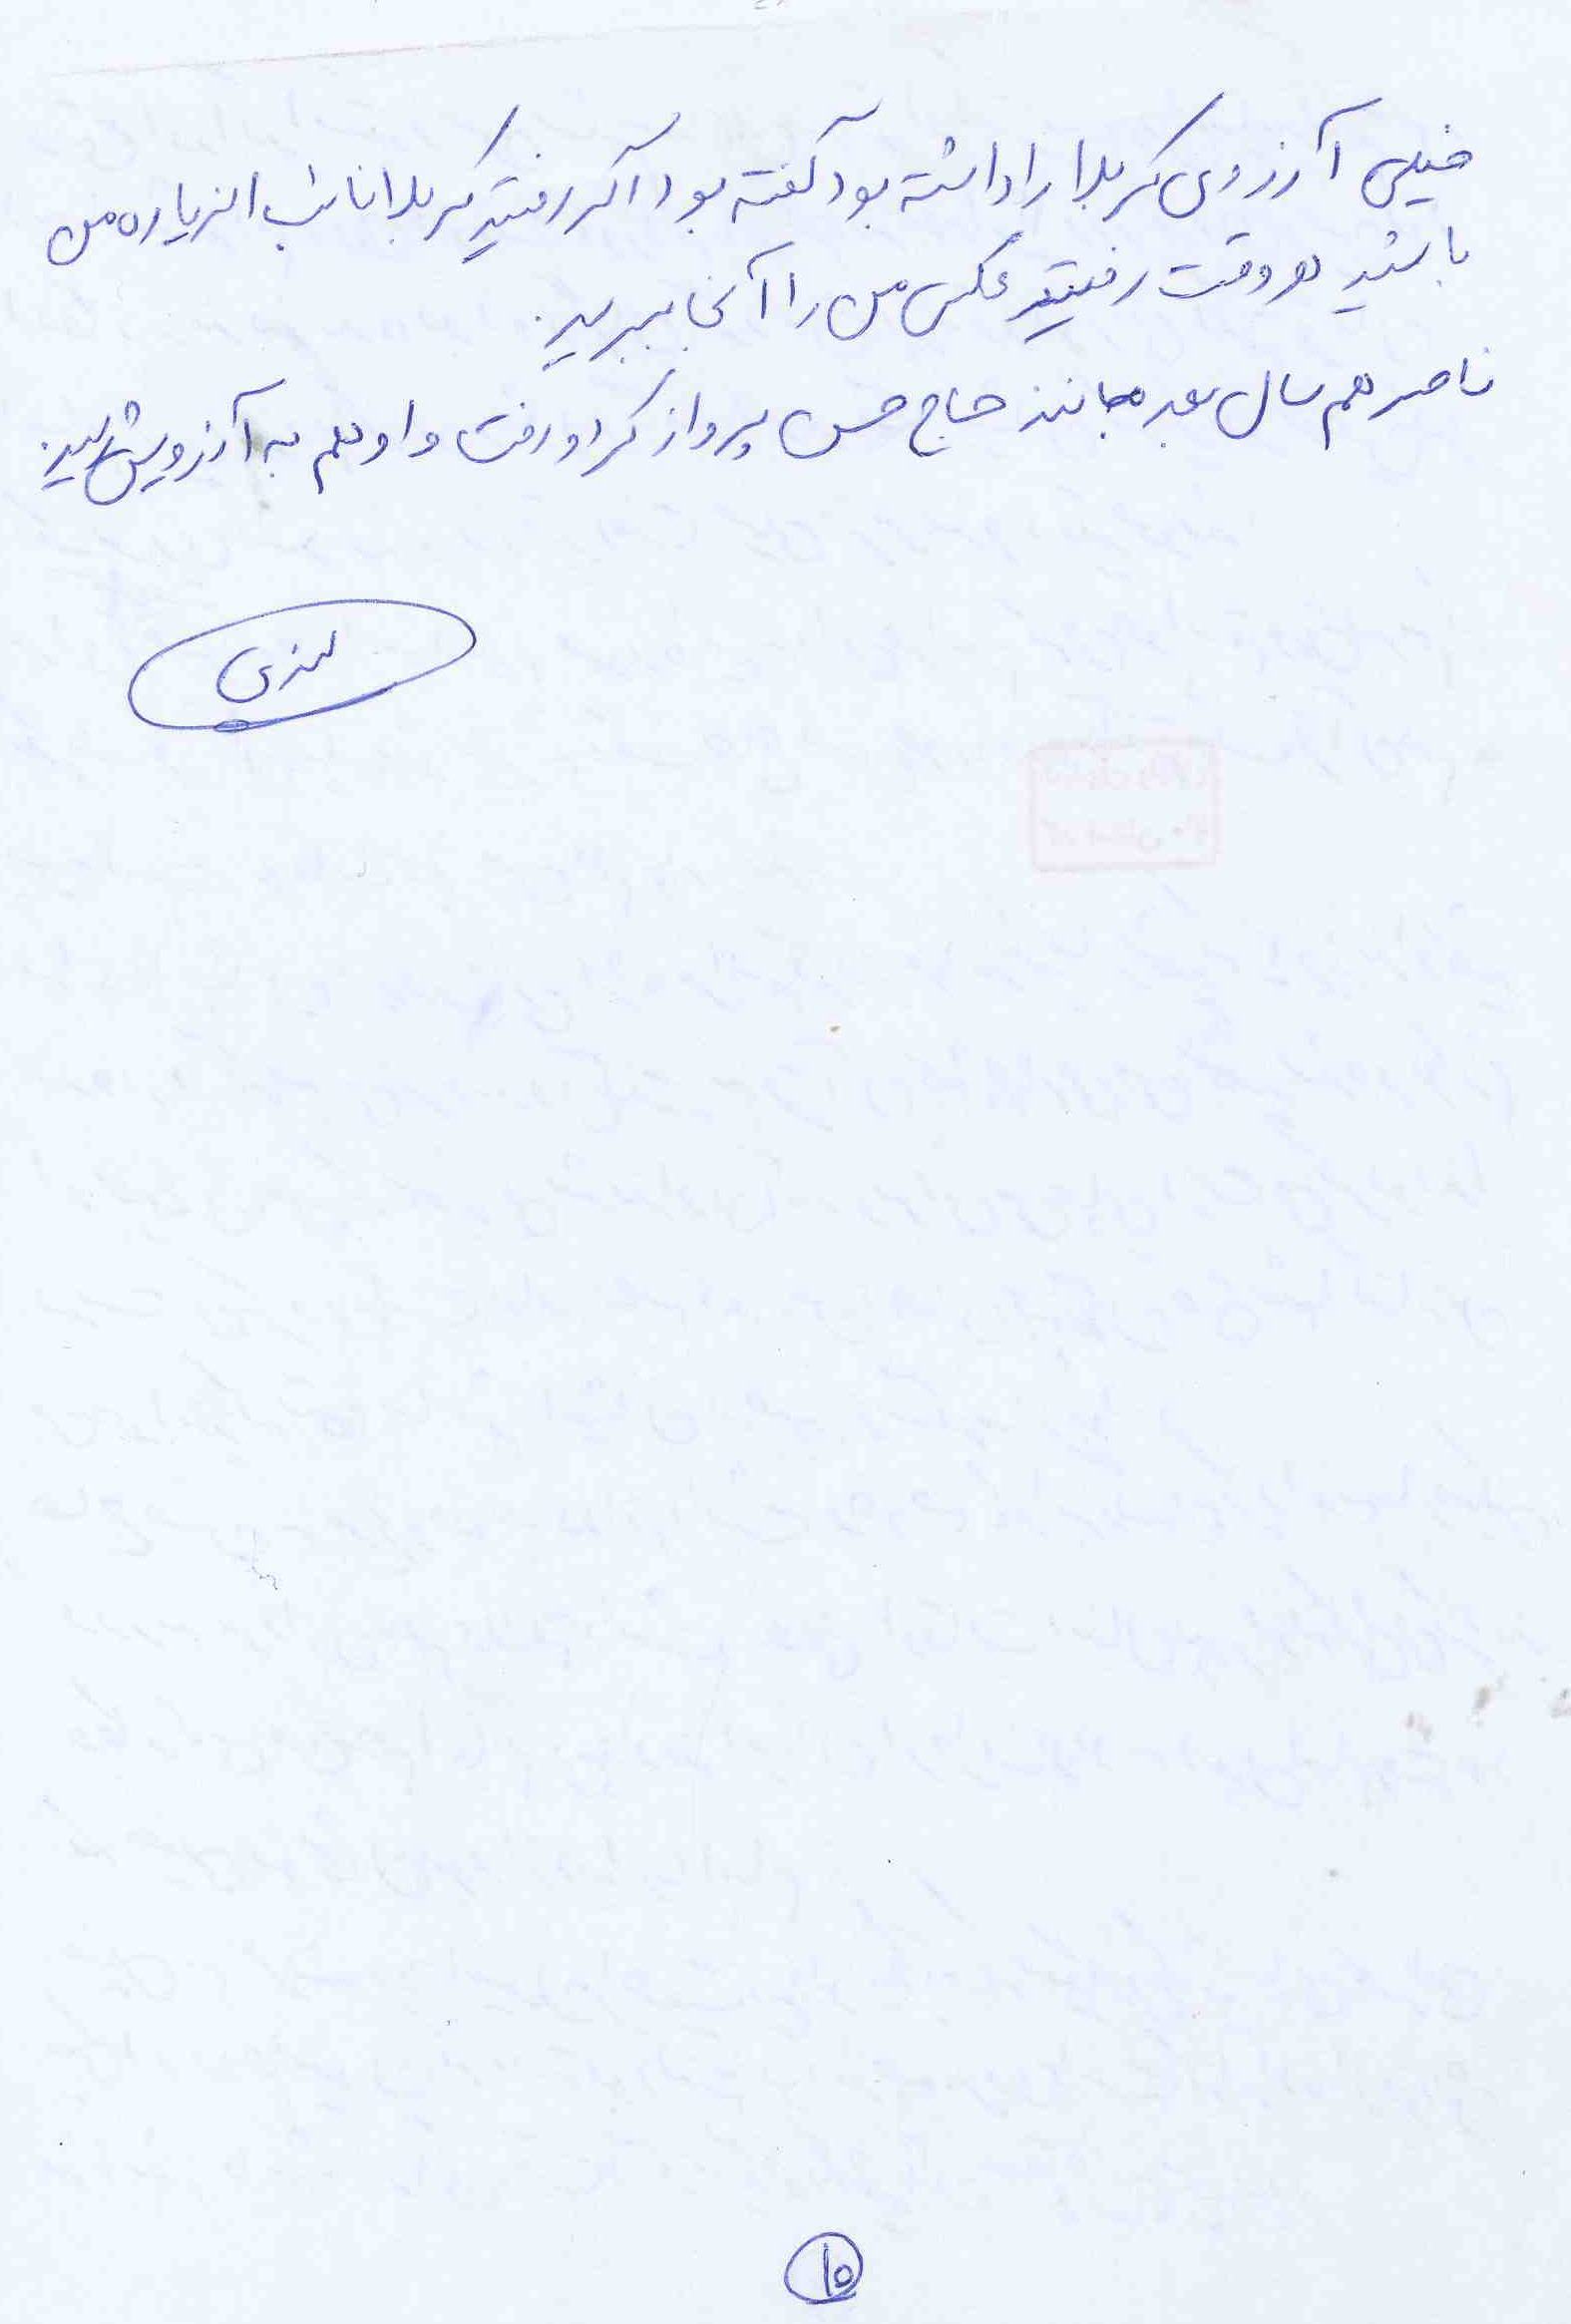 خیلی آرزوی کربلا را داشته بود گفته بود اگر رفتید کربلا نائب الزیاره من
باشید هر وقت رفتید عکس من را آنجا ببرید.
ناصر هم سال بعد مانند حاج حسن پرواز کرد و رفت و او هم به آرزویش رسید.
۱۵